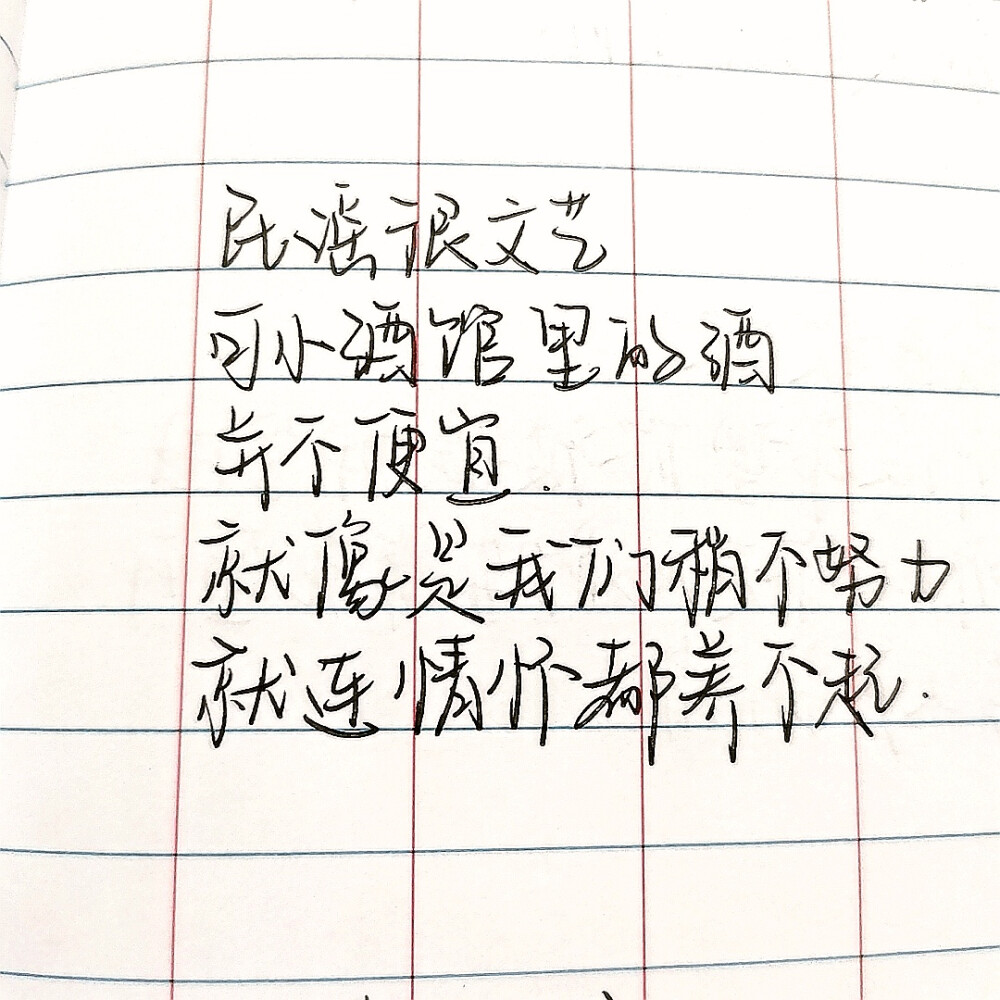 民谣很文艺
可小酒馆里的酒
并不便宜.
就像是我们稍不努力
就连情怀都养不起.